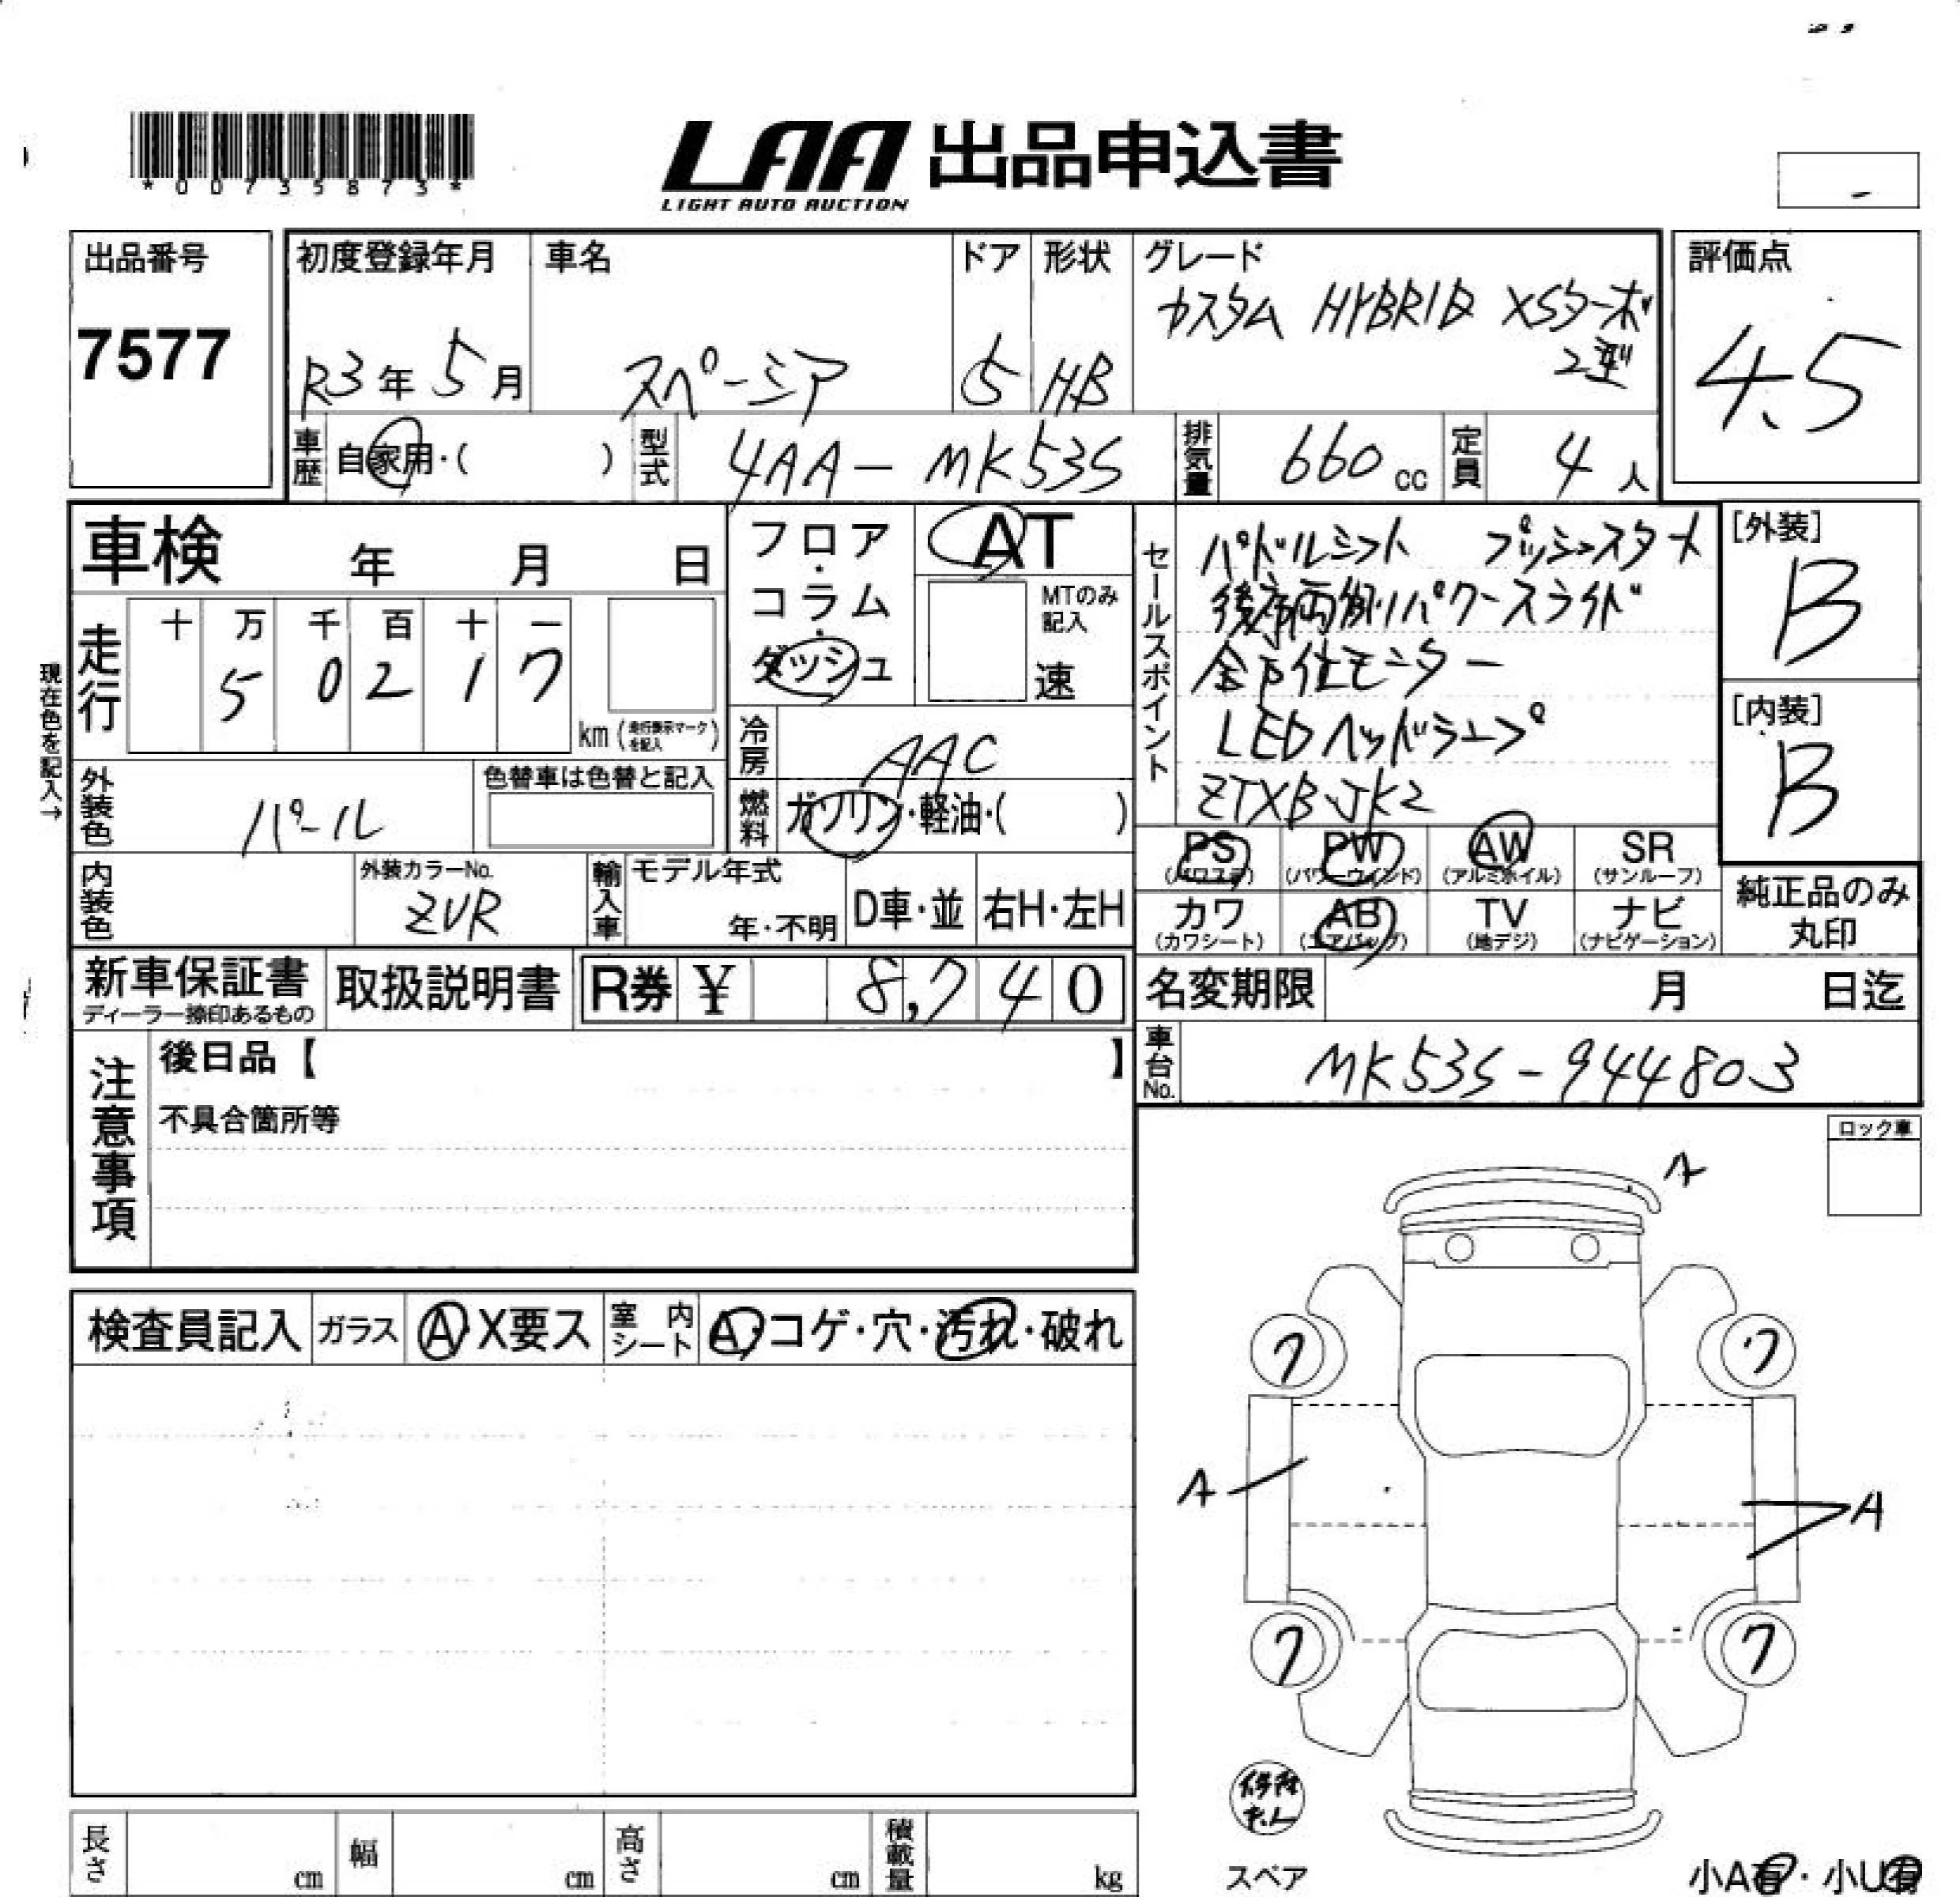 *00735873*
LAA 出品申込書
LIGHT AUTO AUCTION
出品番号
7577
初度登録年月
R3年 5月
車名
スペーシア
ドア
5
形状
HB
グレード
カスタム HYBRID XSターボ
2型
評価点
4.5
車歴 自家用・( )
型式 4AA-MK53S
排気量 660cc
定員 4人
車検 年 月 日
フロア・コラム・ダッシュ
AT
MTのみ記入
速
現在色を記入→
走行
十 万 千 百 十 一
5 0 2 1 7
km(走行表示マークを記入)
冷房 AAC
燃料 ガソリン・軽油・( )
外装色 パール
色替車は色替と記入
内装色
外装カラーNo.
ZVR
輸入車
モデル年式
年・不明
D車・並
右H・左H
セールスポイント
パドルシフト プッシュスタート
後席両側パワースライド
全方位モニター
LEDヘッドランプ
ZTXB-JK2
[外装]
B
[内装]
B
PS (パワステ)
PW (パワーウィンド)
AW (アルミホイル)
SR (サンルーフ)
カワ (カワシート)
AB (エアバッグ)
TV (地デジ)
ナビ (ナビゲーション)
純正品のみ
丸印
新車保証書
ディーラー捺印あるもの
取扱説明書
R券 ¥ 8,740
名変期限 月 日迄
車台No. MK53S-944803
注意事項
後日品【 】
不具合箇所等
ロック車
検査員記入
ガラス A・X要ス
室内シート A・コゲ・穴・汚れ・破れ
A
7 7
A A
7 7
修復なし
スペア
小A有・小U有
長さ cm
幅 cm
高さ cm
積載量 kg